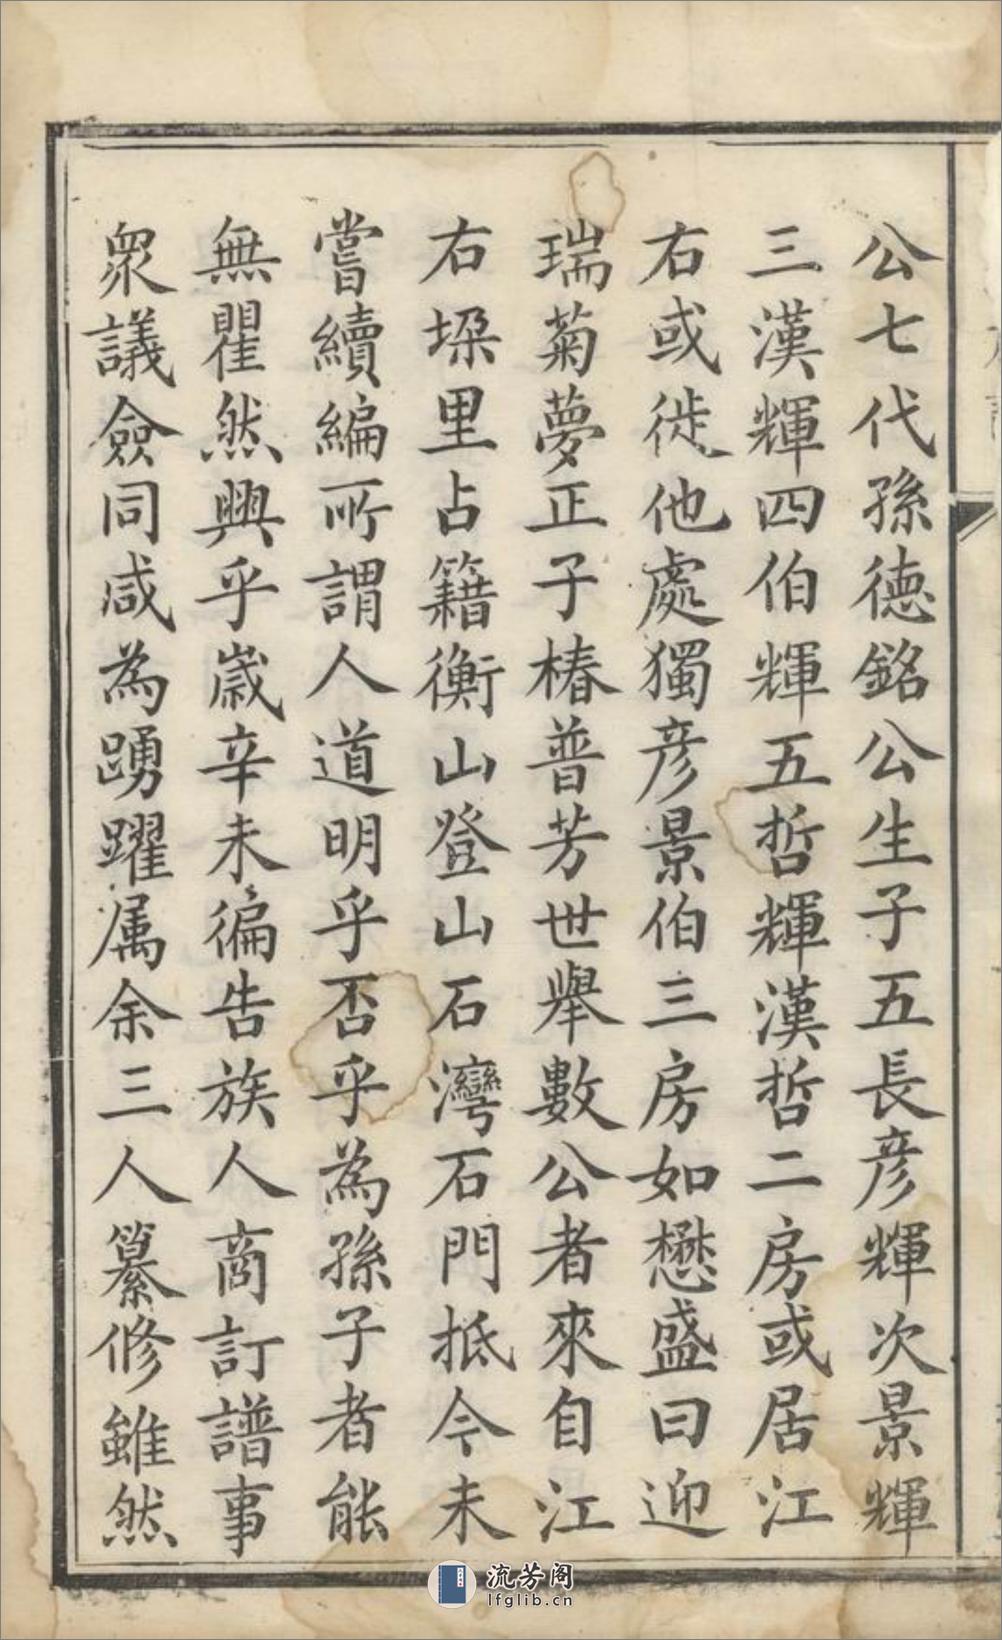 公七代孫德銘公生子五長彥輝次景輝
三漢輝四伯輝五哲輝漢哲二房或居江
右或徙他處獨彥景伯三房如懋盛曰迎
瑞菊夢正子椿普芳世舉數公者來自江
右垜里占籍衡山登山石灣石門抵今未
嘗續編所謂人道明乎否乎為孫子者能
無瞿然興乎歲辛未徧告族人商訂譜事
衆議僉同咸為踴躍属余三人纂修雖然
流芳阁
lfglib.cn